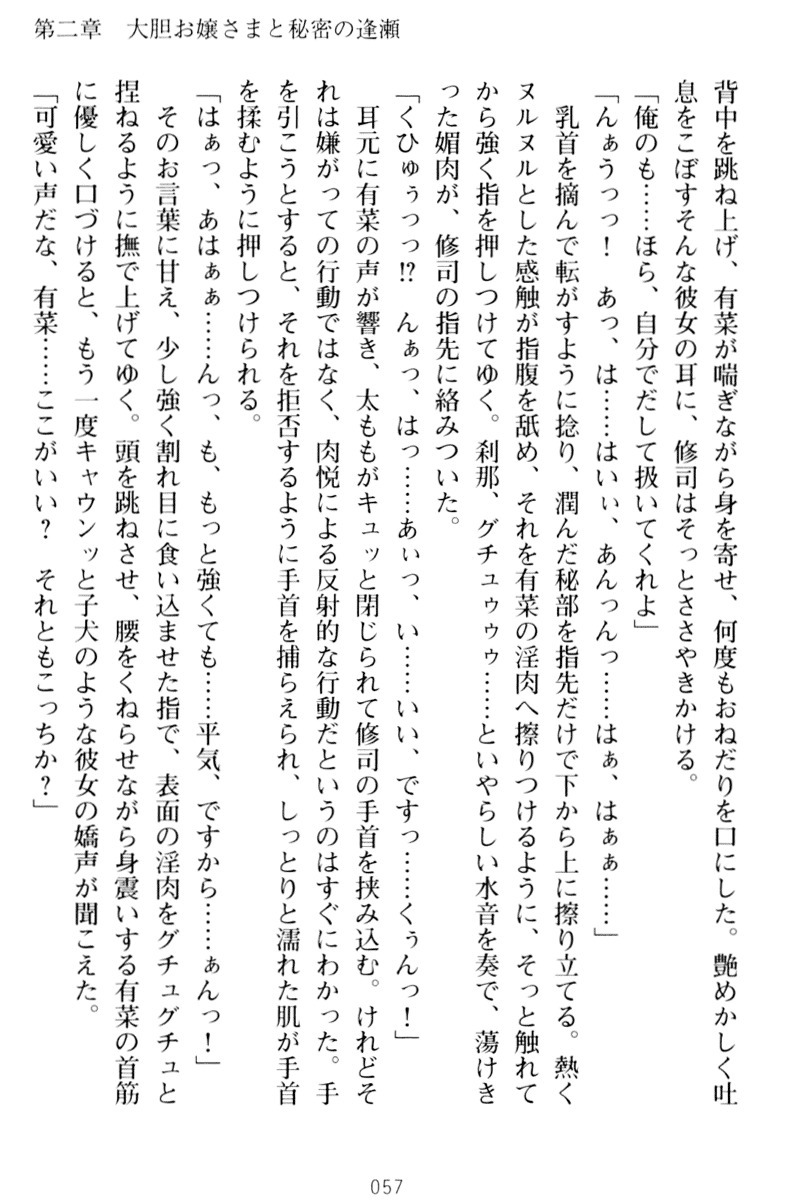 第二章　大胆お嬢さまと秘密の逢瀬
背中を跳ね上げ、有菜が喘ぎながら身を寄せ、何度もおねだりを口にした。艶めかしく吐
息をこぼすそんな彼女の耳に、修司はそっとささやきかける。
「俺のも……ほら、自分でだして扱いてくれよ」
「んぁうっっ！　あっ、は……はいぃ、あんっんっ……はぁ、はぁぁ……」
　乳首を摘んで転がすように捻り、潤んだ秘部を指先だけで下から上に擦り立てる。熱く
ヌルヌルとした感触が指腹を舐め、それを有菜の淫肉へ擦りつけるように、そっと触れて
から強く指を押しつけてゆく。刹那、グチュゥゥゥ……といやらしい水音を奏で、蕩けき
った媚肉が、修司の指先に絡みついた。
「くひゅぅっっ!?　んぁっ、はっ……あぃっ、い……いい、ですっ……くぅんっ！」
　耳元に有菜の声が響き、太ももがキュッと閉じられて修司の手首を挟み込む。けれどそ
れは嫌がっての行動ではなく、肉悦による反射的な行動だというのはすぐにわかった。手
を引こうとすると、それを拒否するように手首を捕らえられ、しっとりと濡れた肌が手首
を揉むように押しつけられる。
「はぁっ、あはぁぁ……んっ、も、もっと強くても……平気、ですから……ぁんっ！」
　そのお言葉に甘え、少し強く割れ目に食い込ませた指で、表面の淫肉をグチュグチュと
捏ねるように撫で上げてゆく。頭を跳ねさせ、腰をくねらせながら身震いする有菜の首筋
に優しく口づけると、もう一度キャウンッと子犬のような彼女の嬌声が聞こえた。
「可愛い声だな、有菜……ここがいい？　それともこっちか？」
057